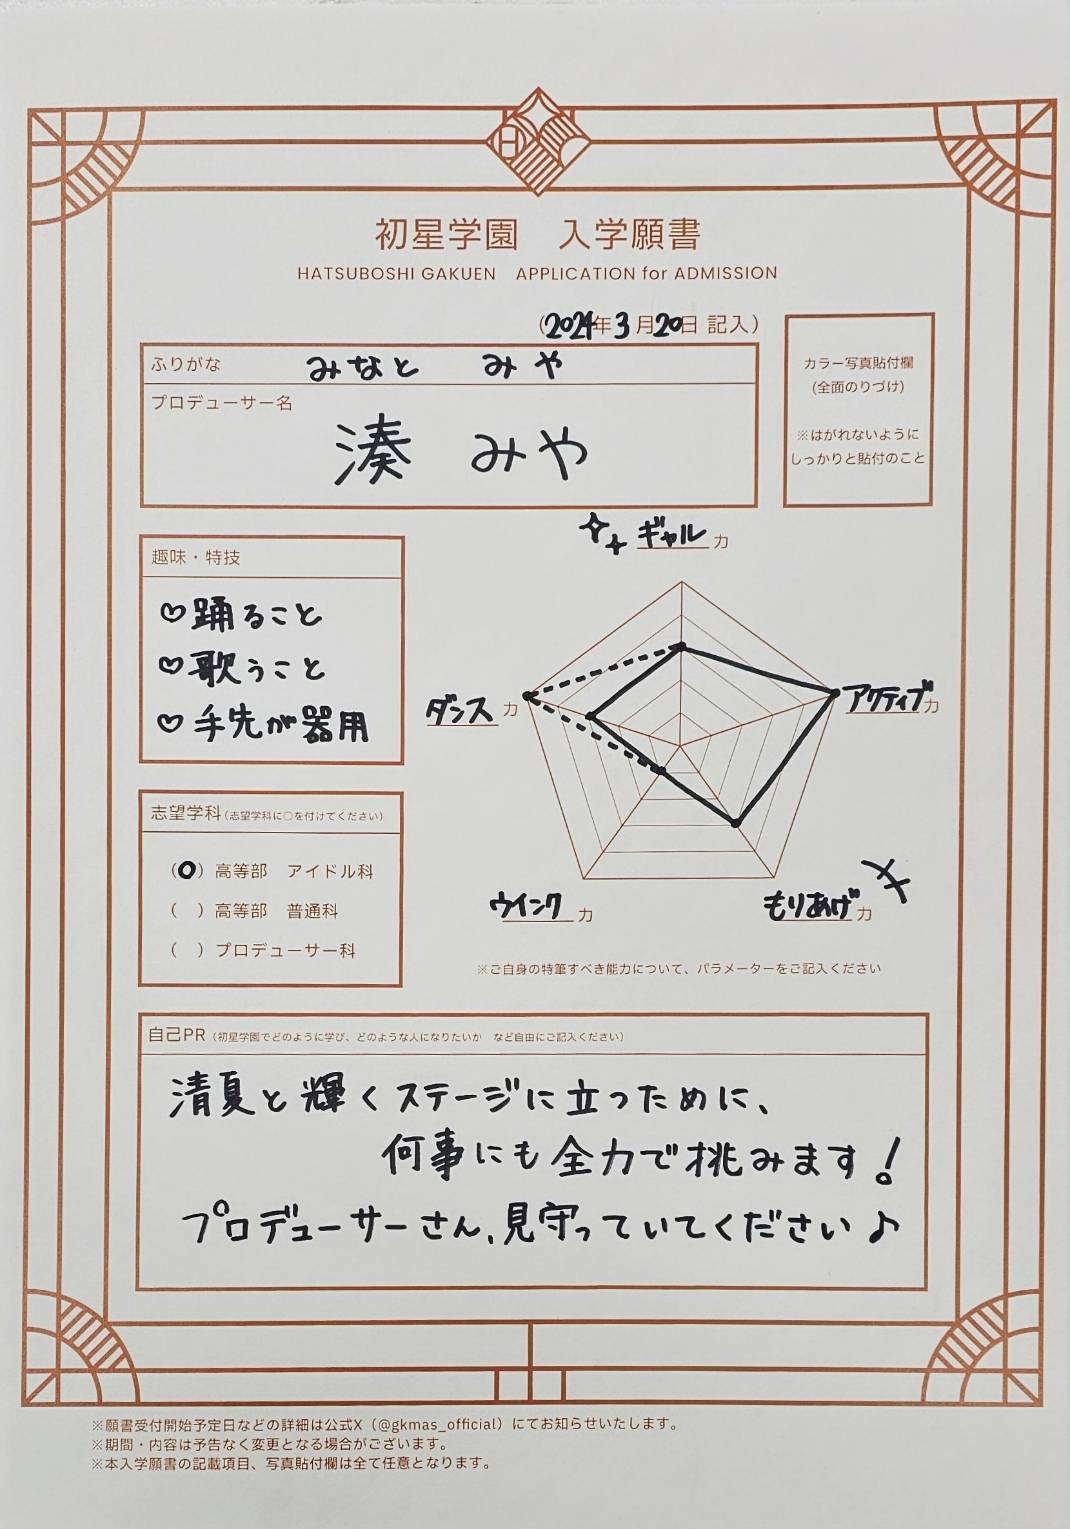 初星学園 入学願書
HATSUBOSHI GAKUEN APPLICATION for ADMISSION
(2024年3月20日 記入)
ふりがな みなと みや
プロデューサー名
湊 みや
カラー写真貼付欄
(全面のりづけ)
※はがれないように
しっかりと貼付のこと
趣味・特技
♡踊ること
♡歌うこと
♡手先が器用
ギャル力
ダンス力
アクティブ力
ウインク力
もりあげ力
※ご自身の特筆すべき能力について、パラメーターをご記入ください
志望学科(志望学科に○を付けてください)
(○)高等部 アイドル科
( )高等部 普通科
( )プロデューサー科
自己PR(初星学園でどのように学び、どのような人になりたいか など自由にご記入ください)
清夏と輝くステージに立つために、
何事にも全力で挑みます!
プロデューサーさん、見守っていてください♪
※願書受付開始予定日などの詳細は公式X(@gkmas_official)にてお知らせいたします。
※期間・内容は予告なく変更となる場合がございます。
※本入学願書の記載項目、写真貼付欄は全て任意となります。